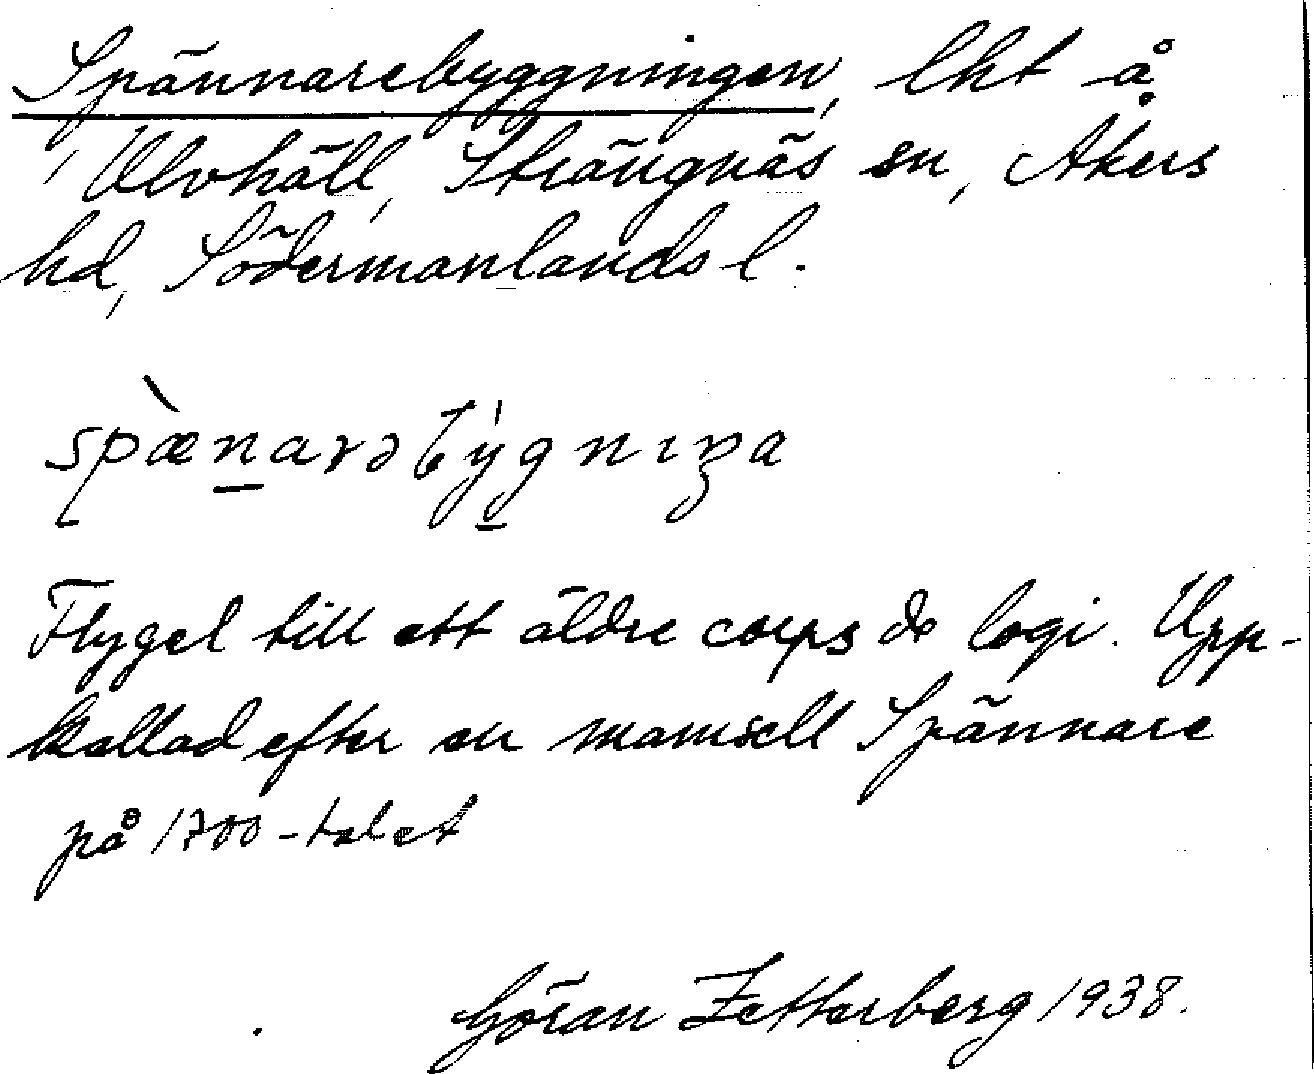 Spännarebyggningen, lht å
Ulvhäll, Strängnäs sn, Åkers
hd, Södermanlands l.
spæ̀narəby̍gnıŋa
Flygel till ett äldre corps de logi. Upp-
kallad efter en mamsell Spännare
på 1700-talet
Göran Zetterberg 1938.